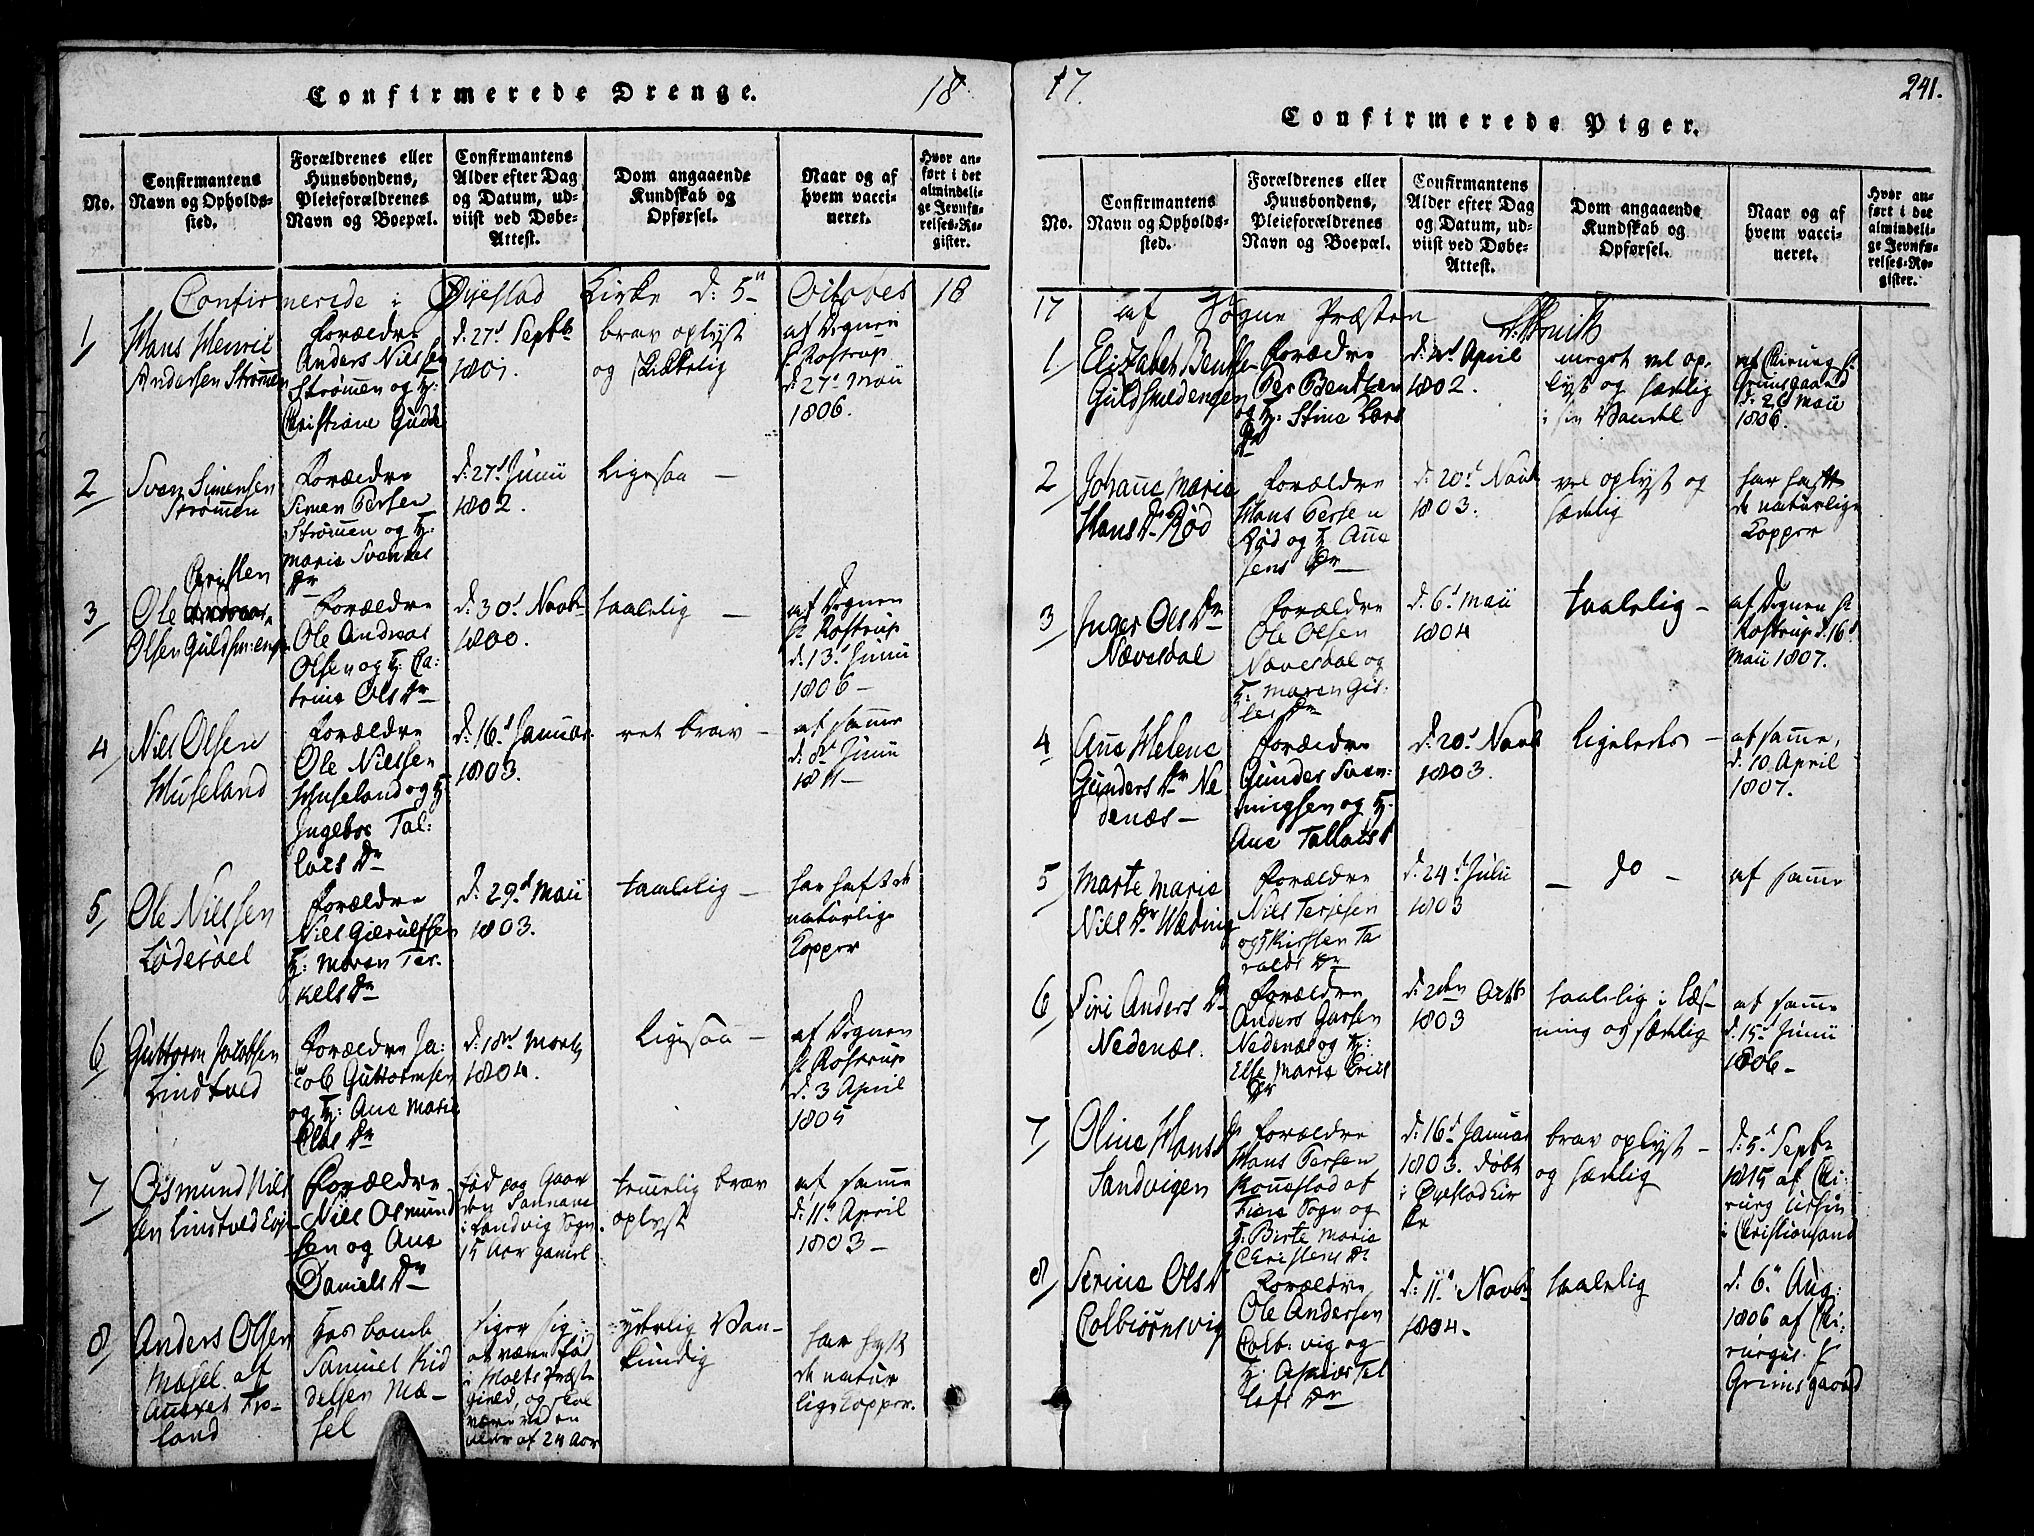 Confirmerede Drenge.
18
No.
Confirmantens
Navn og Opholds-
sted.
Forældrenes eller
Huusbondens,
Pleieforældrenes
Navn og Boepæl.
Confirmantens
Alder efter Dag
og Datum, ud-
viist ved Døbe-
Attest.
Dom angaaende
Kundskab og
Opførsel.
Naar og af
hvem vacci-
neret.
Hvor an-
ført i det
almindeli-
ge Jevnfø-
relses-Re-
gister.
Confirmerede i Øyestad Kirke d: 5te October 18
1
Hans Henric
Andersen Strømen
Forældre
Anders Nilsen
Strømen og H:
Christiane Gude
d: 27d Septb
1801.
brav oplyst
og skikkelig
af Degnen
Hr Rostrup
d: 27d Maii
1806.
2
Sven Simensen
Strømen
Forældre
Simen Persen
Strømen og H:
Marie Svends
Dr
d: 27d Junii
1802.
Ligesaa —
3
Ole Christen
Olsen Guldsm:engen
Forældre
Ole Andreas
Olsen og H: Ca:
trine Ols Dr
d: 30d Novb
1800.
taalelig —
af Degnen
Hr Rostrup
d: 13d Junii
1806 —
4
Niels Olsen
Huseland
Forældre
Ole Nielsen
Huseland og H:
Ingebor Tal:
lacs Dr
d: 16d Januar
1803.
ret brav —
af samme
d: 8d Junii
1811 —
5
Ole Nielsen
Lødesøel
Forældre
Niels Gierulfsen
H: Maren Ter-
kels Dr
d: 29d Maii
1803.
taalelig —
har haft de
naturlige
Kopper
6
Guttorm Jacobsen
Lindtved
Forældre Ja:
cob Guttormsen
og H: Ane Marie
Olas Dr
d: 18d Marty
1804.
Ligesaa —
af Degnen
Hr Rostrup
d. 3 April
1805
7
Osmund Nils
sen Lindtved Eye
Forældre
Niels Osmund
sen og Ane
Daniels Dr
fød paa Gaar
den Sannane
i Landvig Sogn.
15 Aar gamel
temelig brav
oplyst
af samme
d: 11d April
1803 —
8
Anders Olsen
Mæsel af
Annexet Fro-
land
Hosbonde
Samuel Kid
delsen Mæ-
sel
siger sig
at være fød
i Holts Præst-
gield, og skal
være ved en
alder af 24 Aar
ysterlig Van-
kundig
har haft
de natur
lige Kopper.
17.
241.
Confirmerede Piger.
No.
Confirmantens
Navn og Opholds-
sted.
Forældrenes eller
Huusbondens,
Pleieforældrenes
Navn og Boepæl.
Confirmantens
Alder efter Dag
og Datum, ud-
viist ved Døbe-
Attest.
Dom angaaende
Kundskab og
Opførsel.
Naar og af
hvem vacci-
neret.
Hvor an-
ført i det
almindeli-
ge Jevnfø-
relses-Re-
gister.
17 af Sogne Præsten
1
Elizabet Bents
Guldsmedengen
Forældre
Per Bentsen
og H: Stine Lars
Dr
d: 2d April
1802.
meget vel op-
lyst og sædelig
i sin Vandel
af Chirurg Hr
Grimsgaard
d: 26 Maii
1806.
2
Johanne Marie
Hans Dr Rød
Forældre
Hans Persen
Rød og H: Ane
Jens Dr
d: 20d Novb
1803.
vel oplyst og
sædelig
har haft
de naturlige
Kopper
3
Inger Ols Dr
Næversdal
Forældre
Ole Olsen
Næversdal og
H: Maren Gis-
les Dr
d: 6d Maii
1804
taalelig —
af Degnen Hr
Rostrup d: 16d
Maii 1807.
4
Ane Helene
Gunders Dr Ne
denæs —
Forældre
Gunder Sven:
ningsen og H:
Ane Tallacs
d: 20d Novb
1803.
ligeledes —
af samme,
d: 10 April
1807.
5
Marte Marie
Niels Dr Wæding
Forældre
Niels Terjesen
og H Kirsten Ta
ralds Dr
d: 24d Julii
1803
— do —
af samme
6
Siri Anders Dr
Nedenæs.
Forældre
Anders Garsen
Nedenæs og H:
Else Marie Erics
Dr
d: 2den Octb
1803
taalelig i Læs-
ning og sædelig
af samme
d. 15d Junii
1806 —
7
Oline Hans Dr
Sandvigen
Forældre
Hans Persen
Konnestad af
Fiere Sogn og
H: Birte Marie
Christens Dr
d: 16d Januar
1803. døbt
i Øyestad Kir
ke
brav oplyst —
og sædelig
d: 5d Septbr
1815 af Chi-
rurg Ursin
i Christiansand
8
Serine Ols Dr
Colbiørnsvig
Forældre
Ole Andersen
Colb: vig og
H: Asnæs Tal
lefs Dr
d: 11d Novb
1804.
taalelig
d: 6d Aug:
1806 af Chi:
rurgus Hr
Grimsgaard